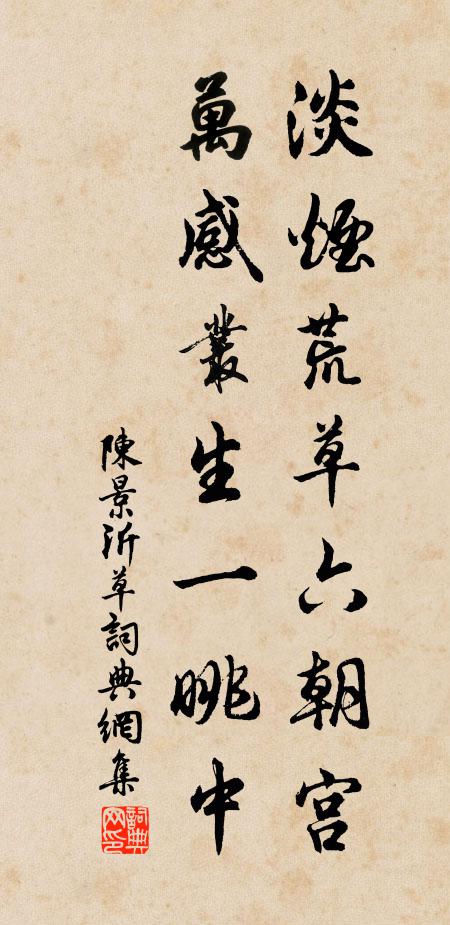 淡煙荒草六朝宮
萬感叢生一眺中
陳景沂草詞典網集
詞典網印